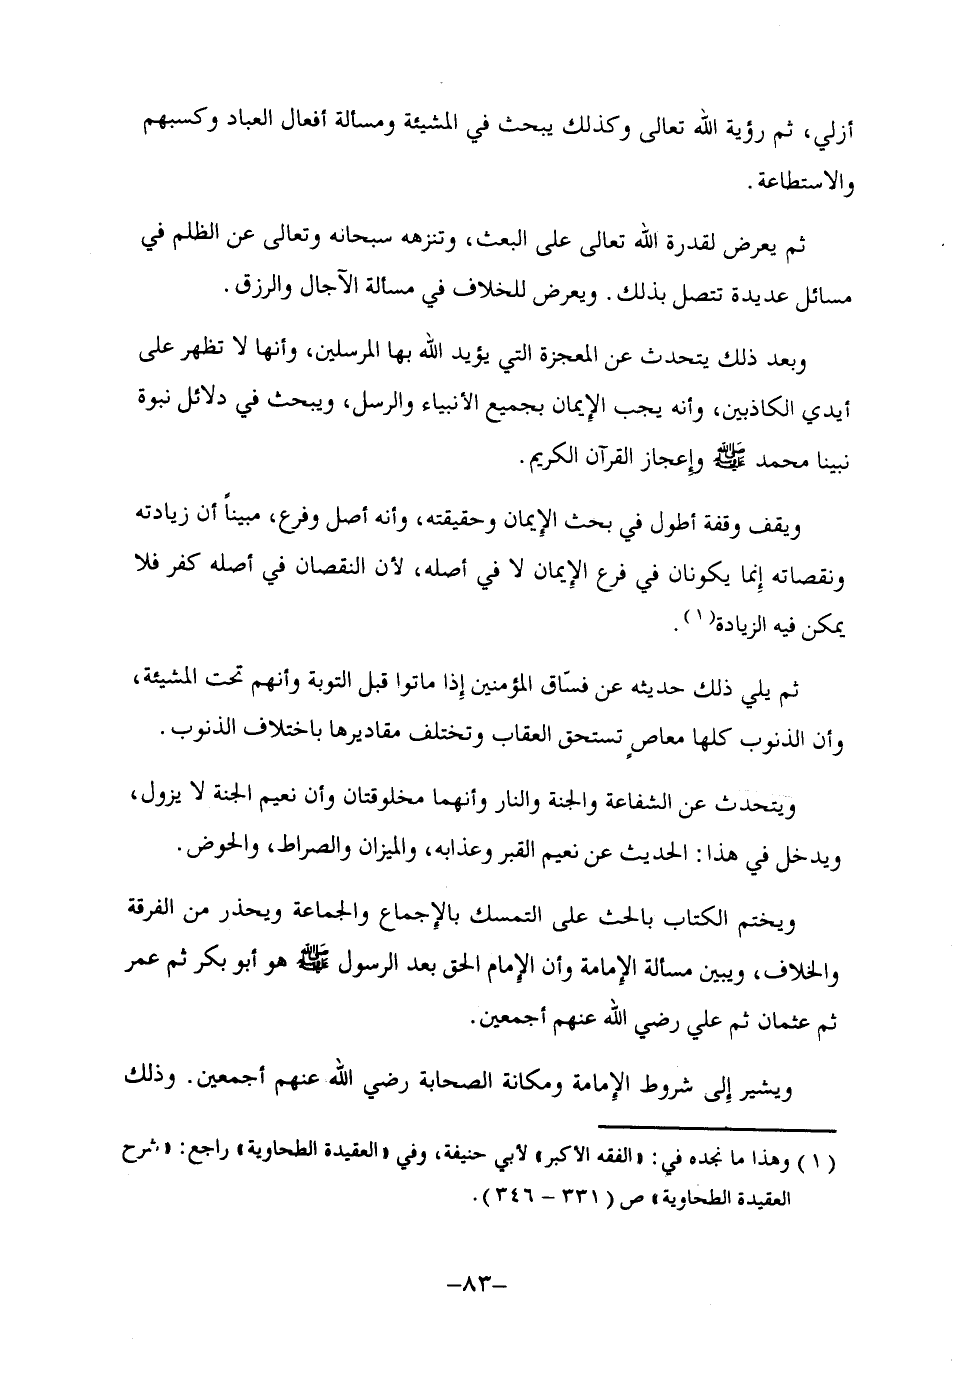 أزلي، ثم رؤية الله تعالى وكذلك يبحث في المشيئة ومسألة أفعال العباد وكسبهم
والاستطاعة.
ثم يعرض لقدرة الله تعالى على البعث، وتنزهه سبحانه وتعالى عن الظلم في
مسائل عديدة تتصل بذلك. ويعرض للخلاف في مسألة الآجال والرزق.
وبعد ذلك يتحدث عن المعجزة التي يؤيد الله بها المرسلين، وأنها لا تظهر على
أيدي الكاذبين، وأنه يجب الإيمان بجميع الأنبياء والرسل، ويبحث في دلائل نبوة
نبينا محمد ﷺ وإعجاز القرآن الكريم.
ويقف وقفة أطول في بحث الإيمان وحقيقته، وأنه أصل وفرع، مبيناً أن زيادته
ونقصاته إنما يكونان في فرع الإيمان لا في أصله، لأن النقصان في أصله كفر فلا
يمكن فيه الزيادة(١).
ثم يلي ذلك حديثه عن فسّاق المؤمنين إذا ماتوا قبل التوبة وأنهم تحت المشيئة،
وأن الذنوب كلها معاصٍ تستحق العقاب وتختلف مقاديرها باختلاف الذنوب.
ويتحدث عن الشفاعة والجنة والنار وأنهما مخلوقتان وأن نعيم الجنة لا يزول،
ويدخل في هذا: الحديث عن نعيم القبر وعذابه، والميزان والصراط، والحوض.
ويختم الكتاب بالحث على التمسك بالإجماع والجماعة ويحذر من الفرقة
والخلاف، ويبين مسألة الإمامة وأن الإمام الحق بعد الرسول ﷺ هو أبو بكر ثم عمر
ثم عثمان ثم علي رضي الله عنهم أجمعين.
ويشير إلى شروط الإمامة ومكانة الصحابة رضي الله عنهم أجمعين. وذلك
(١) وهذا ما نجده في: «الفقه الاكبر» لأبي حنيفة، وفي «العقيدة الطحاوية» راجع: «شرح
العقيدة الطحاوية» ص (٣٣١ – ٣٤٦).
–٨٣–